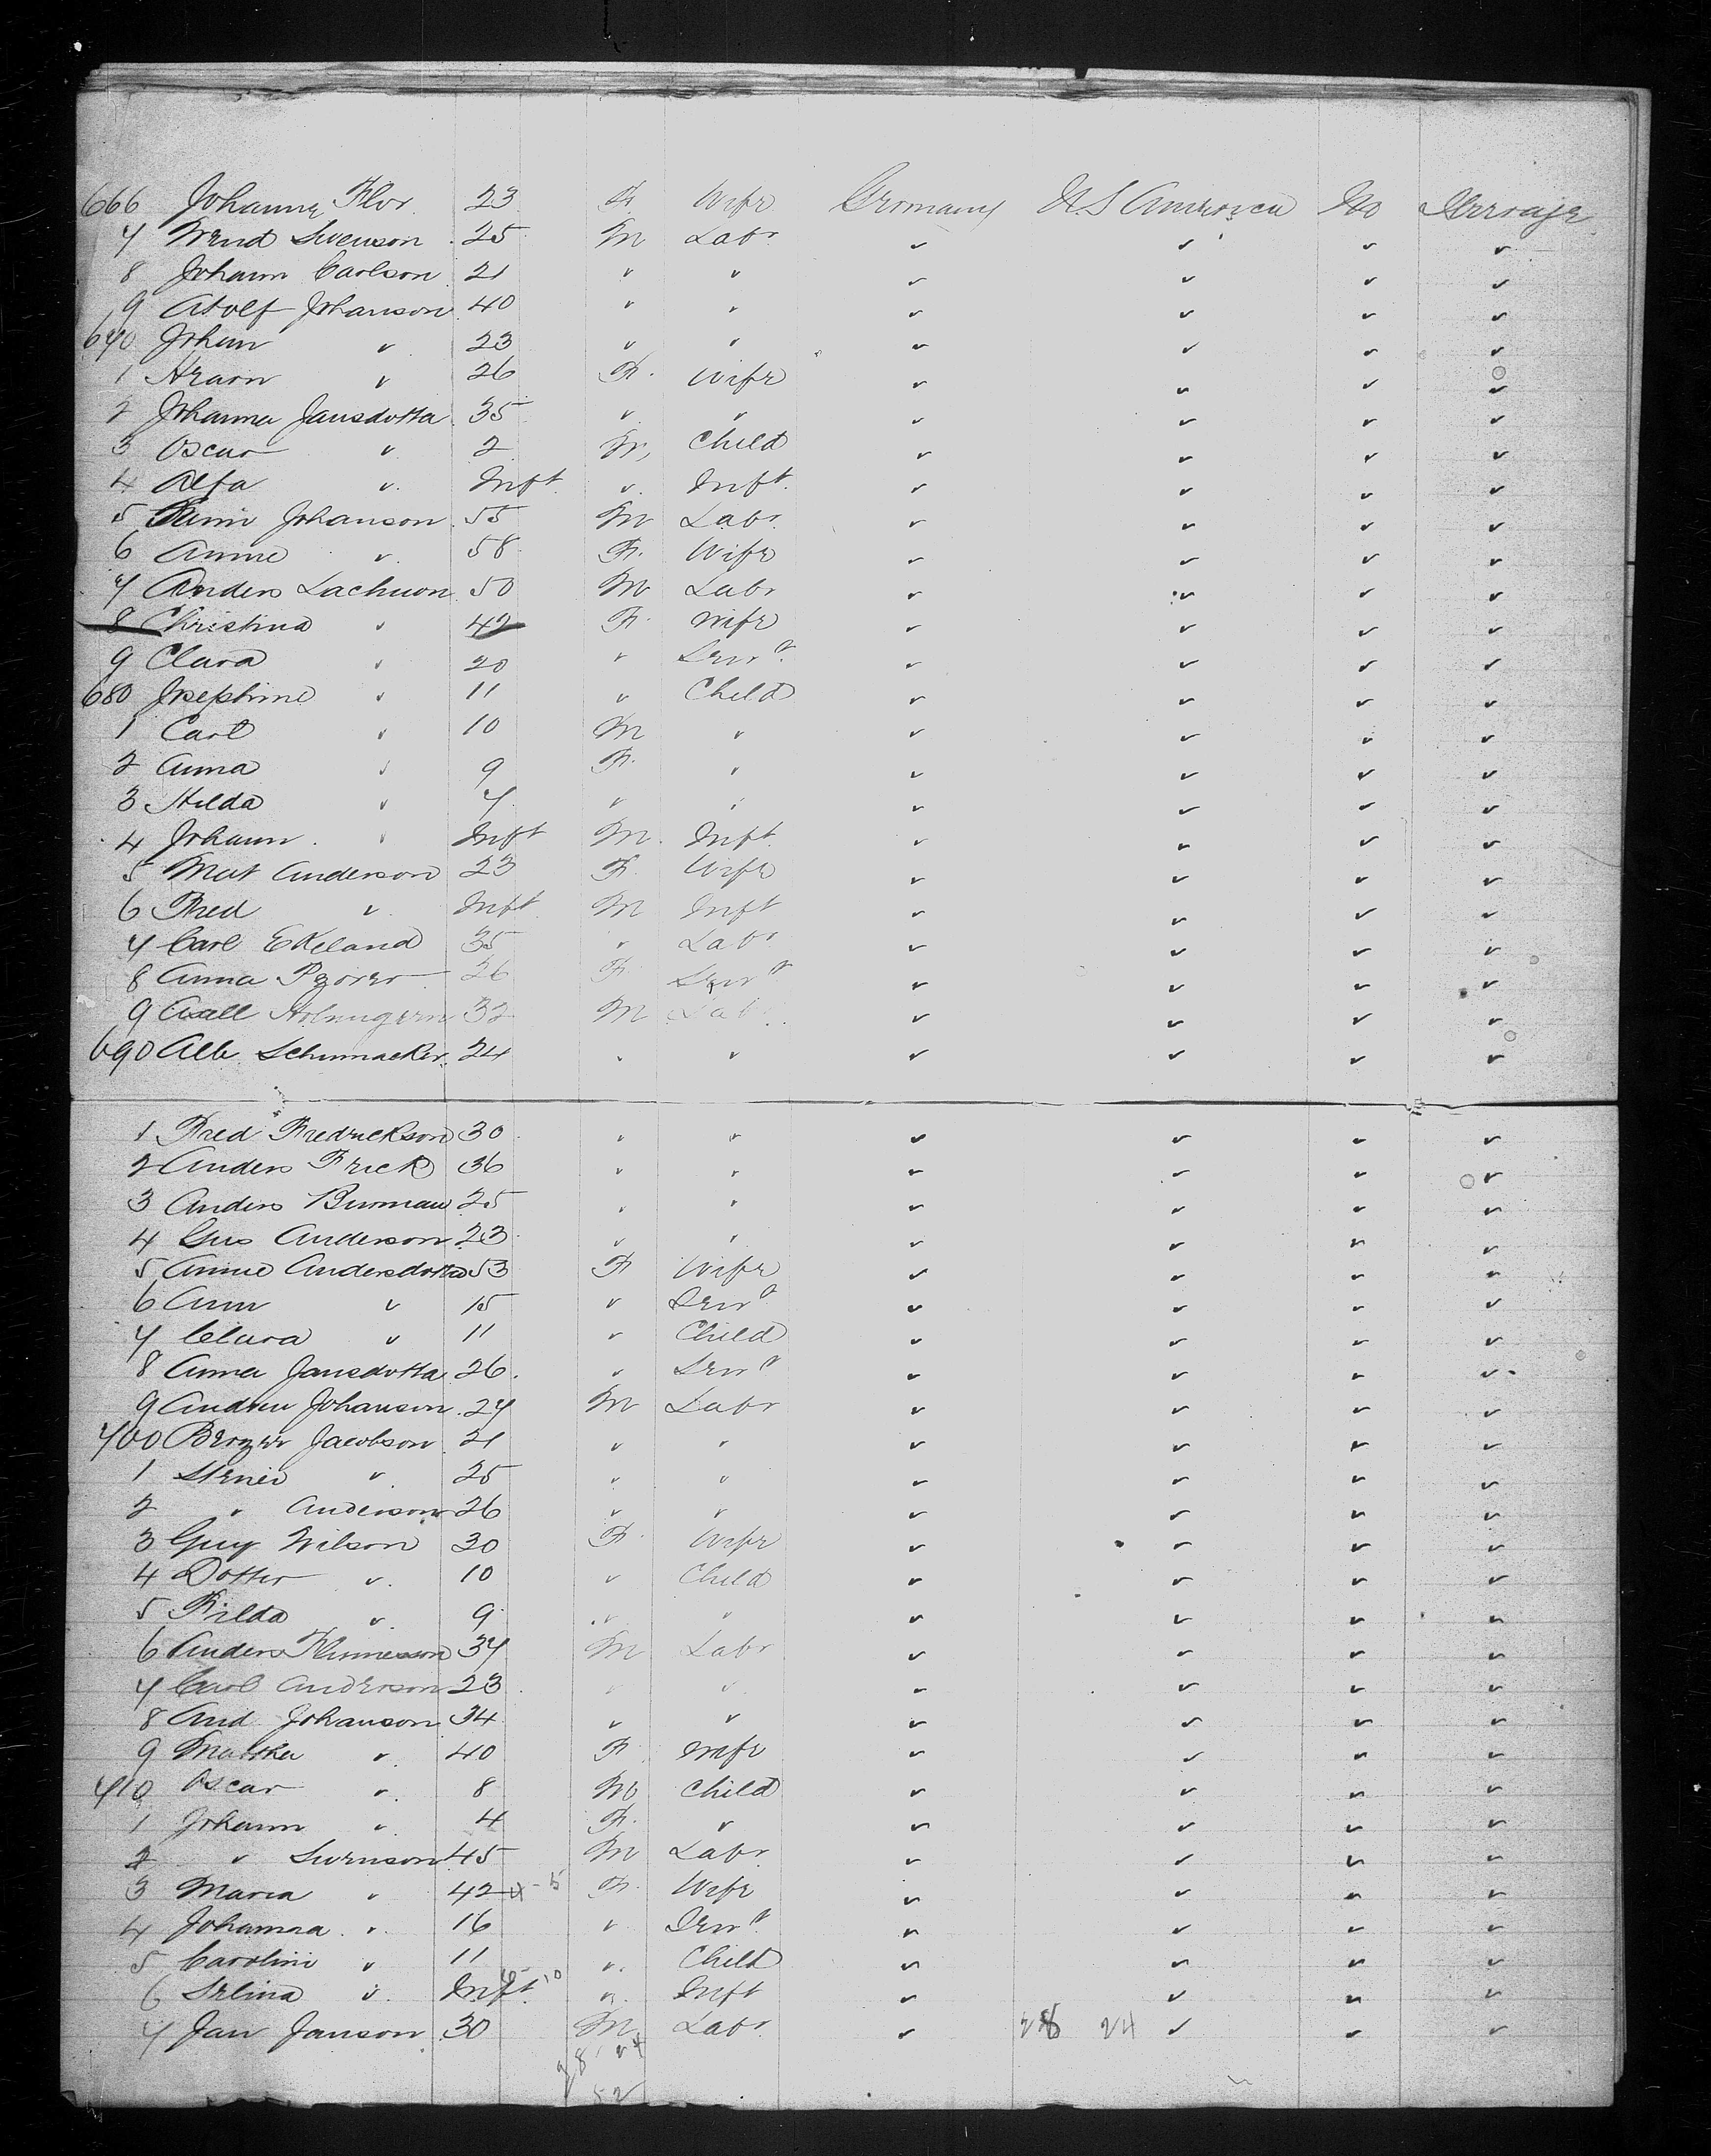 666 Johanna Flor 23 F. Wife Germany U S America No Steerage
7 Wend Swenson 25 M Labr " " " "
8 Johann Carlson 21 " " " " " "
9 Adolf Johanson 40 " " " " " "
670 Johan " 23 " " " " " "
1 " 26 F. Wife " " " "
2 Johanna Jansdotta 35 " " " " " "
3 Oscar " 2 M, Child " " " "
4 Alfa " Inft. " Inft. " " " "
5 Johanson 55 M Labr " " " "
6 Annie " 58 F. Wife " " " "
7 Anders Lachuon 50 M Labr " " " "
8 Christina " 42 F. Wife " " " "
9 Clara " 20 " Servt. " " " "
680 Josephine " 11 " Child " " " "
1 Carl " 10 M " " " " "
2 Anna " 9 F. " " " " "
3 Hilda " 7 " " " " " "
4 Johann " Inft M. Inft. " " " "
5 Mat Anderson 23 F. Wife " " " "
6 Fred " Inft M Inft " " " "
7 Carl Ekeland 35 " Labr " " " "
8 Anna 26 F. Servt " " " "
9 Axell Holmngern 32 M Labr " " " "
690 Alb. Schumacker 24 " " " " " "
1 Fred Fredrickson 30 " " " " " "
2 Anders Frick 36 " " " " " "
3 Anders Burman 25 " " " " " "
4 Gus Anderson 23 " " " " " "
5 Annie Andersdotta 53 F Wife " " " "
6 Ann " 15 " Servt " " " "
7 Clara " 11 " Child " " " "
8 Anna Jansdotta 26 " Servt " " " "
9 Andrew Johanson 27 M Labr " " " "
700 Jacobson 21 " " " " " "
1 " 25 " " " " " "
2 " Anderson 26 " " " " " "
3 Guy Wilson 30 F. Wife " " " "
4 Dotter " 10 " Child " " " "
5 Filda " 9 " " " " " "
6 Anders 37 M Labr " " " "
7 Carl Anderson 23 " " " " " "
8 And. Johanson 34 " " " " " "
9 Martha " 40 F Wife " " " "
710 Oscar " 8 M Child " " " "
1 Johann " 4 F. " " " " "
2 " Swenson 45 M Labr " " " "
3 Maria " 42 4-5 F. Wife " " " "
4 Johanna " 16 " Servt " " " "
5 Carolini " 11 " Child " " " "
6 Selina " Inft. 10 " Inft " " " "
7 Jan Janson 30 M Labr " 28 24 " " "
28 24
52